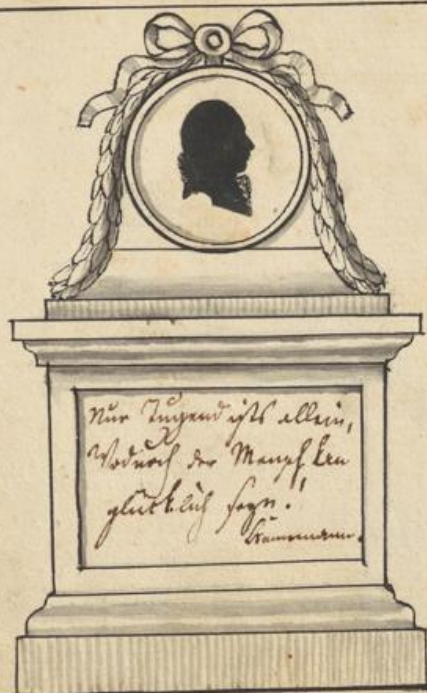 Nur Tugend ists allein,
Wodurch der Mensch kan
glücklich seyn!